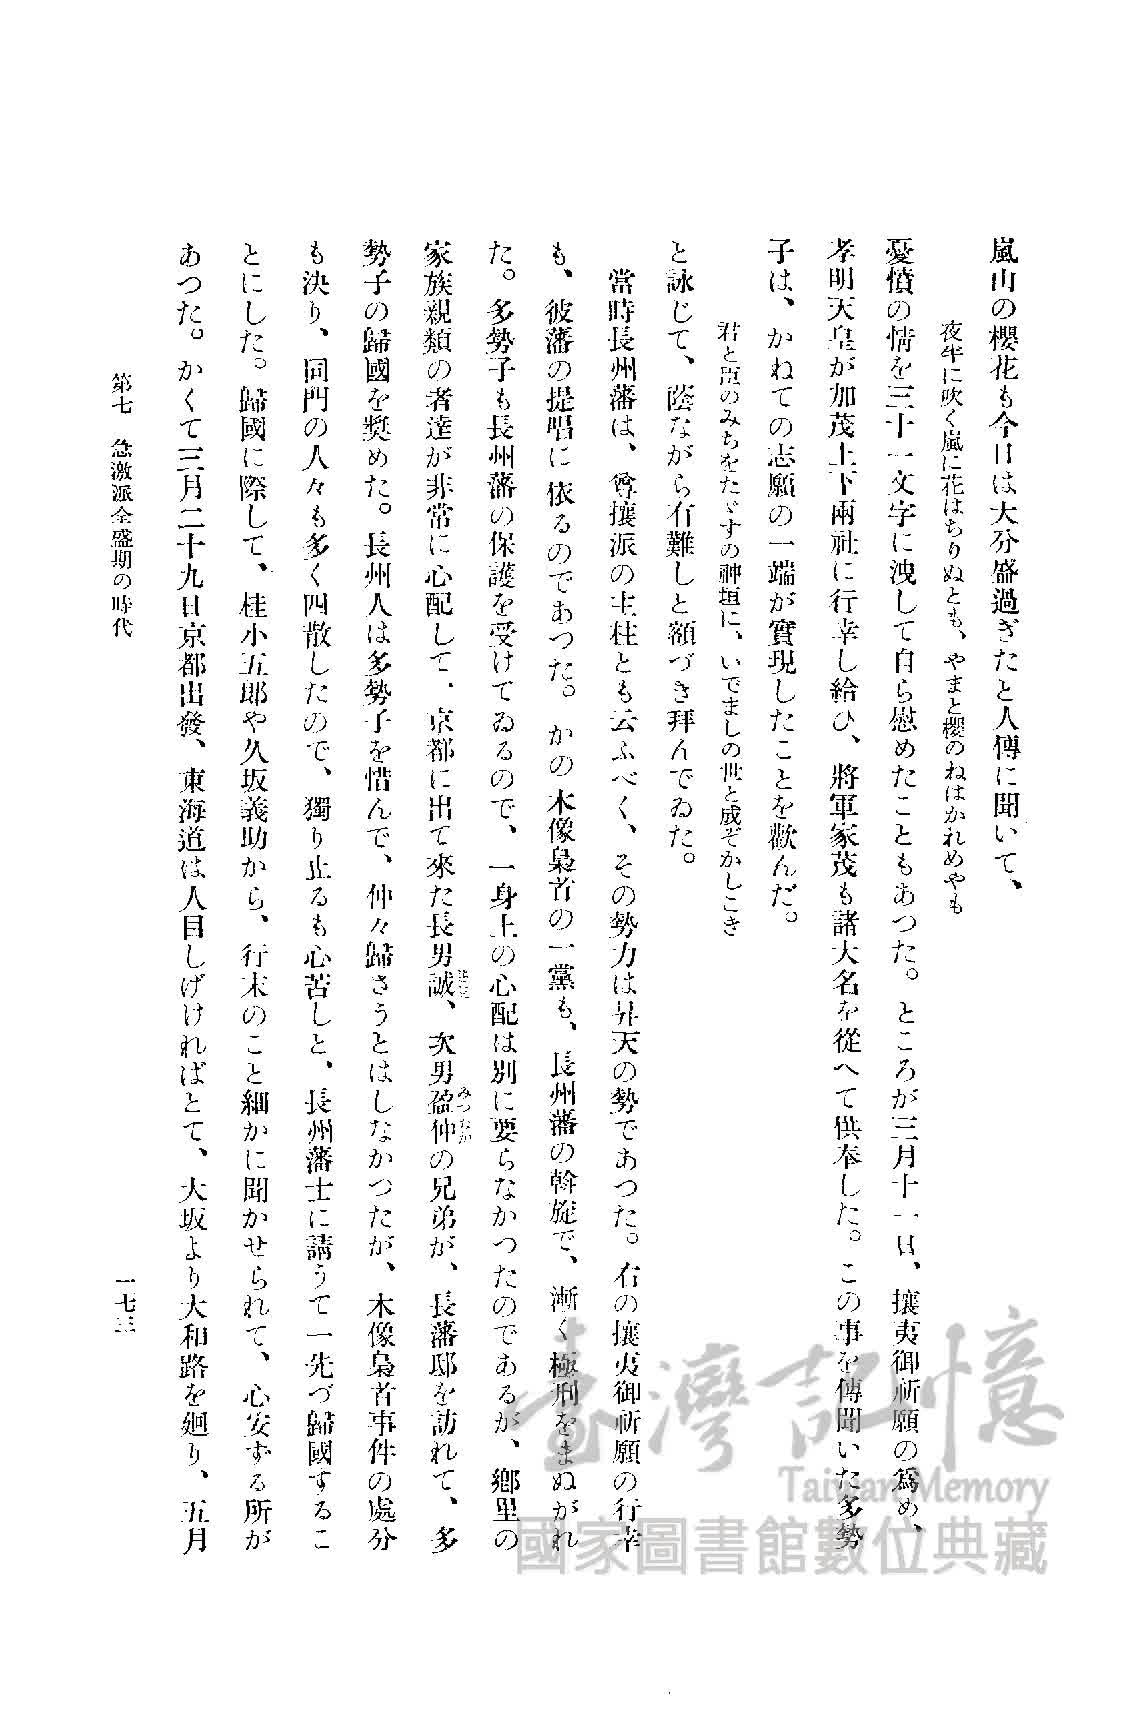 嵐山の櫻花も今日は大分盛過ぎたと人傳に聞いて、
夜半に吹く嵐に花はちりぬとも、やまと櫻のねはかれめやも
憂憤の情を三十一文字に洩して自ら慰めたこともあつた。ところが三月十一日、攘夷御祈願の爲め、
孝明天皇が加茂上下兩社に行幸し給ひ、將軍家茂も諸大名を從へて供奉した。この事を傳聞いた多勢
子は、かねての志願の一端が實現したことを歡んだ。
君と臣のみちをたゞすの神垣に、いでましの世と成ぞかしこき
と詠じて、蔭ながら有難しと額づき拜んでゐた。
當時長州藩は、尊攘派の主柱とも云ふべく、その勢力は昇天の勢であつた。右の攘夷御祈願の行幸
も、彼藩の提唱に依るのであつた。かの木像梟首の一黨も、長州藩の斡旋で、漸く極刑をまぬがれ
た。多勢子も長州藩の保護を受けてゐるので、一身上の心配は別に要らなかつたのであるが、鄕里の
家族親類の者達が非常に心配して、京都に出て來た長男誠、次男盈仲の兄弟が、長藩邸を訪れて、多
みつなか
勢子の歸國を奬めた。長州人は多勢子を惜んで、仲々歸さうとはしなかつたが、木像梟首事件の處分
も決り、同門の人々も多く四散したので、獨り止るも心苦しと、長州藩士に請うて一先づ歸國するこ
とにした。歸國に際して、桂小五郎や久坂義助から、行末のこと細かに聞かせられて、心安ずる所が
あつた。かくて三月二十九日京都出發、東海道は人目しげければとて、大坂より大和路を廻り、五月
第七 急激派全盛期の時代
一七三
臺灣記憶
Taiwan Memory
國家圖書館數位典藏